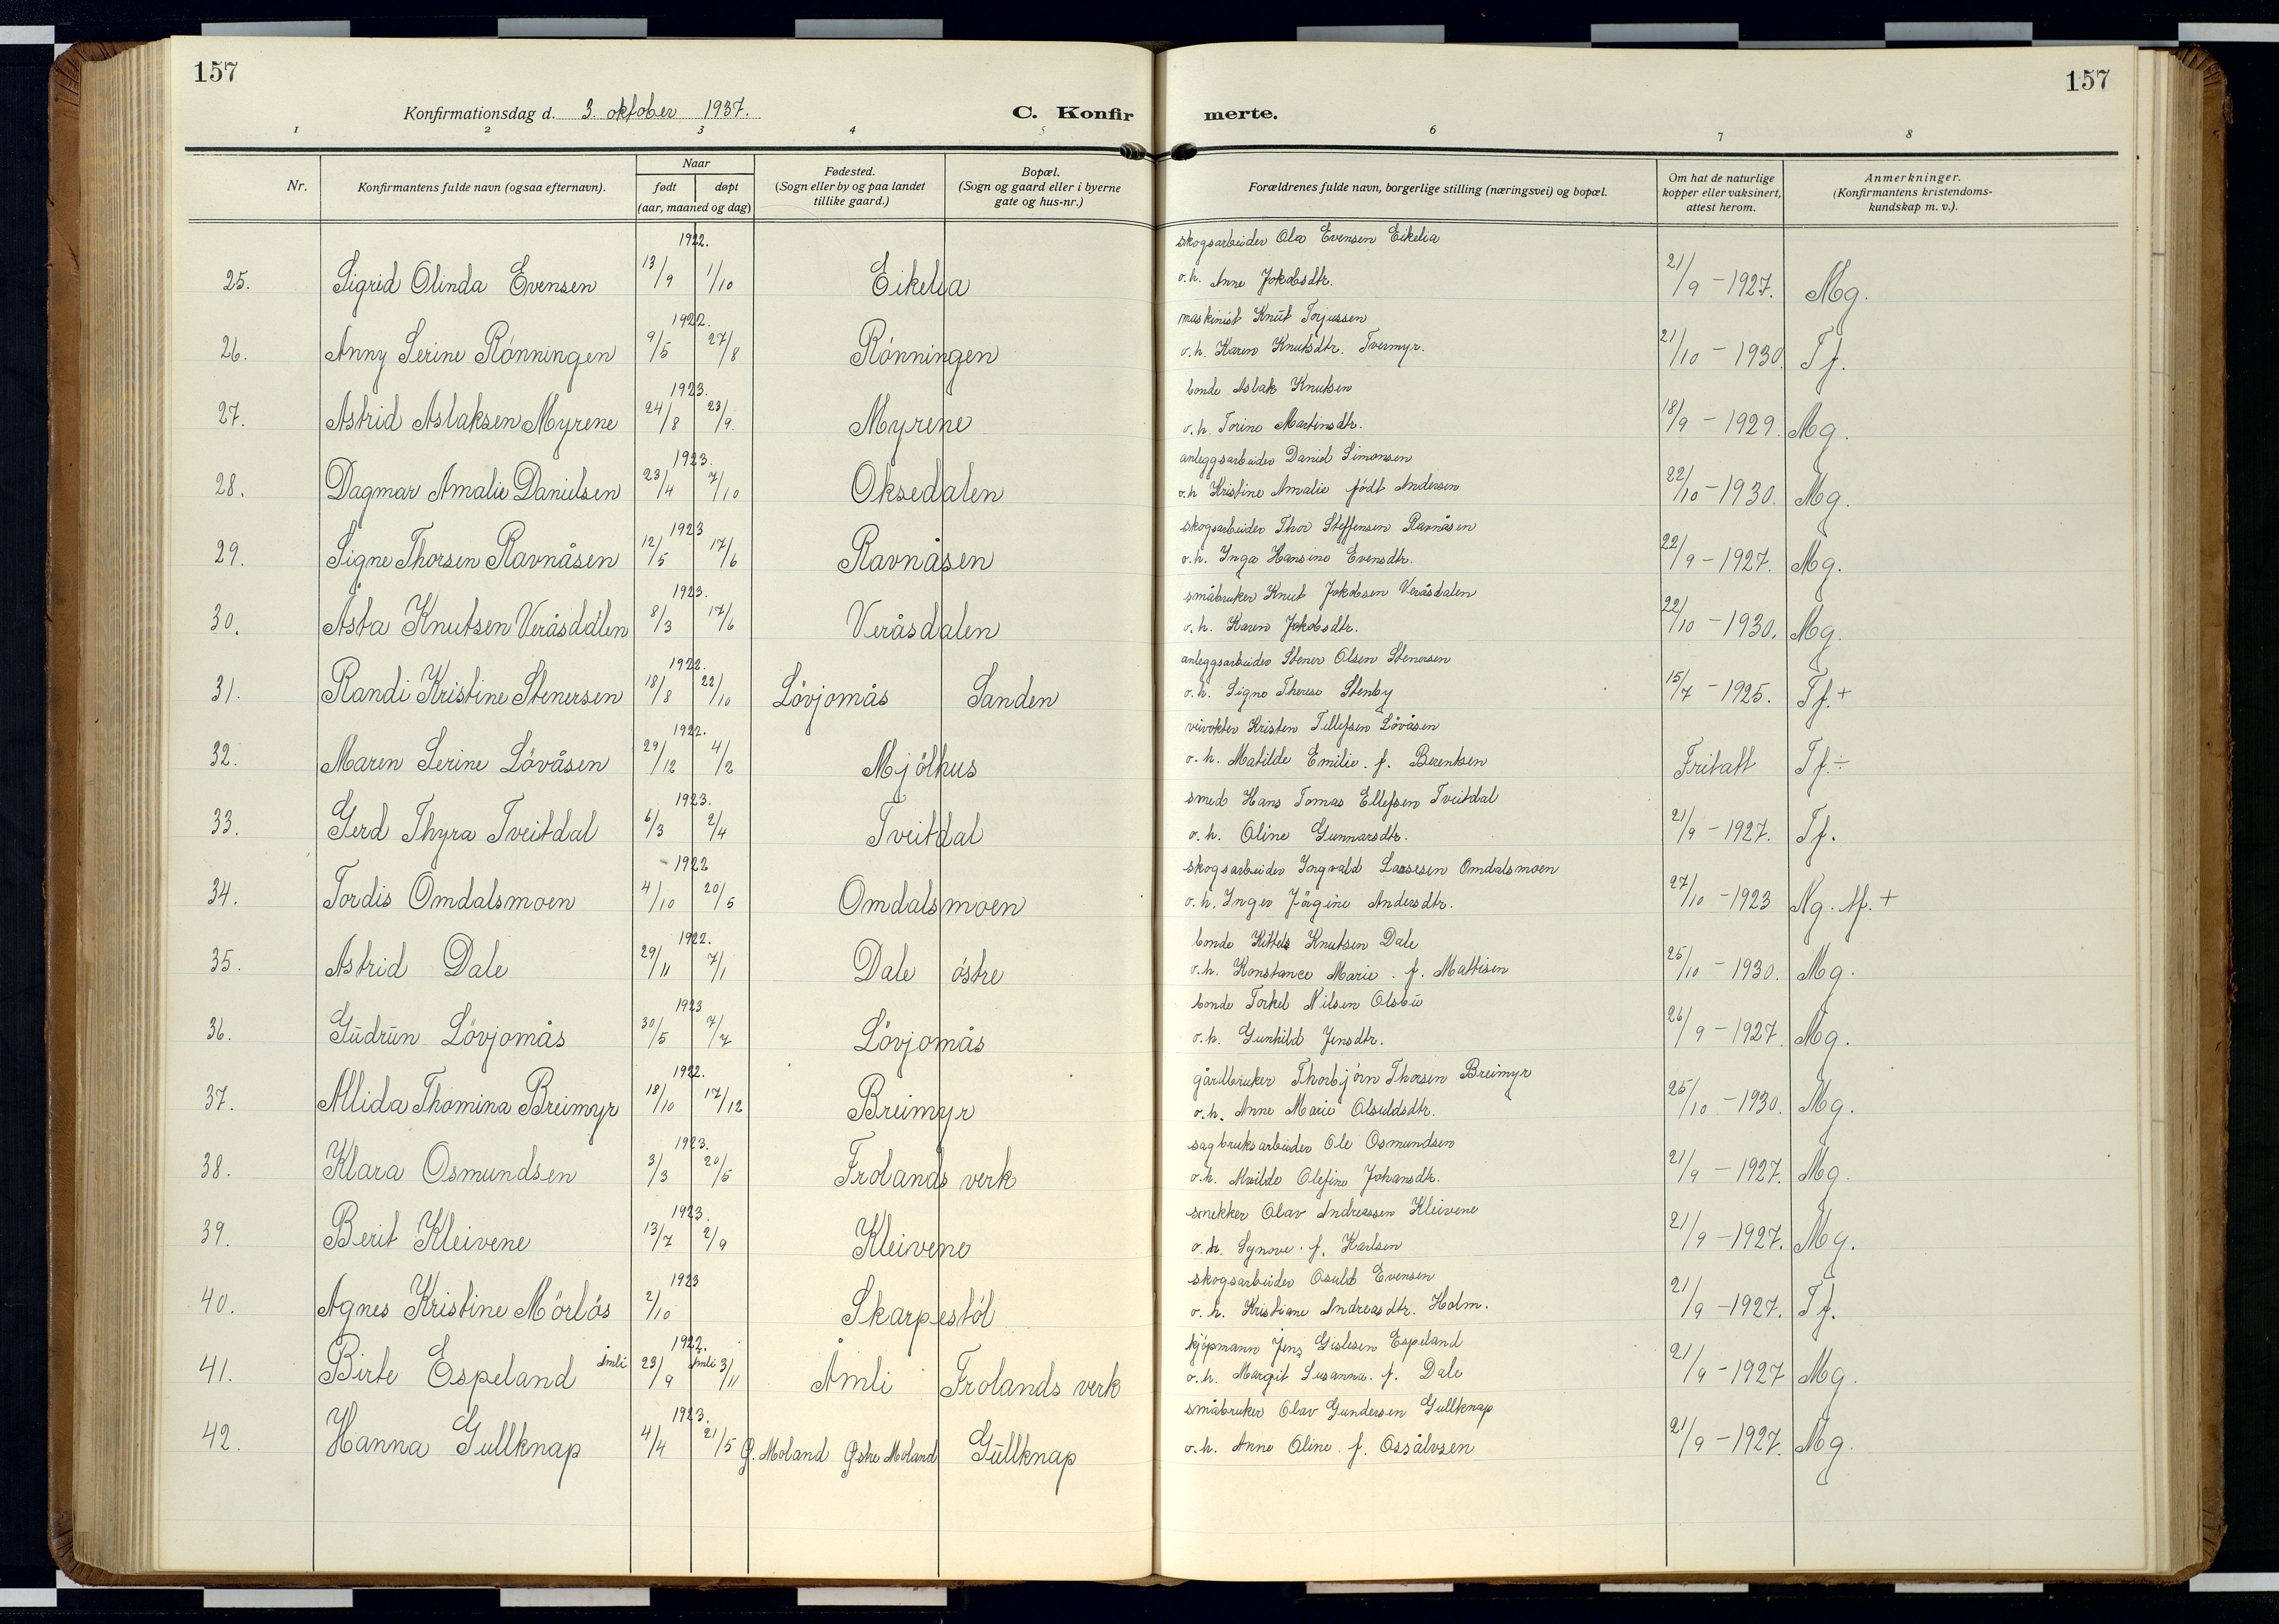 157
157
Konfirmationsdag d. 3. oktober 1937.
C. Konfir merte.
1 2 3 4 5 6 7 8
Nr.
Konfirmantens fulde navn (ogsaa efternavn).
Naar
født døpt
(aar, maaned og dag)
Fødested.
(Sogn eller by og paa landet
tillike gaard.)
Bopæl.
(Sogn og gaard eller i byerne
gate og hus-nr.)
Forældrenes fulde navn, borgerlige stilling (næringsvei) og bopæl.
Om hat de naturlige
kopper eller vaksinert,
attest herom.
Anmerkninger.
(Konfirmantens kristendoms-
kundskap m. v.).
1922. skogsarbeider Ola Evensen Eikelia
25. Sigrid Olinda Evensen 13/9 1/10 Eikelia o.h. Anne Jakobsdtr. 21/9 - 1927. Mg.
1922. maskinist Knut Torjussen
26. Anny Serine Rönningen 9/5 27/8 Rönningen o.h. Karen Knutsdtr. Tvermyr. 21/10 - 1930. Tf.
1923. bonde Aslak Knutsen
27. Astrid Aslaksen Myrene 24/8 23/9. Myrene o.h. Torine Martinsdtr. 18/9 - 1929. Mg.
1923. anleggsarbeider Daniel Simonsen
28. Dagmar Amalie Danielsen 23/4 7/10 Oksedalen o.h Kristine Amalie födt Andersen 22/10 - 1930. Mg.
1923 skogsarbeider Thor Steffensen Ravnåsen
29. Signe Thorsen Ravnåsen 12/5 17/6 Ravnåsen o.h. Inga Hansine Evensdtr. 22/9 - 1927. Mg.
1923. småbruker Knut Jakobsen Veråsdalen
30. Åsta Knutsen Veråsdalen 8/3 17/6 Veråsdalen o.h. Karen Jakobsdtr. 22/10 - 1930. Mg.
1922. anleggsarbeider Stener Olsen Stenersen
31. Randi Kristine Stenersen 18/8 22/10 Lövjomås Sanden o.h. Signe Therese Stenby 15/7 - 1925. Tf.+
1922. veivokter Kristen Tellefsen Lövåsen
32. Maren Serine Lövåsen 29/12 4/2 Mjölhus o.h. Matilde Emilie. f. Berentsen Fritatt Tf.÷
1923. smed Hans Tomas Ellefsen Tveitdal
33. Gerd Thyra Tveitdal 6/3 2/4 Tveitdal o.h. Oline Gunnarsdtr. 21/9 - 1927. Tf.
1922 skogsarbeider Ingvald Larssen Omdalsmoen
34. Tordis Omdalsmoen 4/10 20/5 Omdalsmoen o.h. Inger Jörgine Andersdtr. 27/10 - 1923 Ng. Mf. +
1922. bonde Kittel Knutsen Dale
35. Astrid Dale 29/11 7/1 Dale östre o.h. Konstance Marie. f. Mattisen 25/10 - 1930. Mg.
1923 bonde Torkel Nilsen Olsbu
36. Gudrun Lövjomås 30/5 7/7 Lövjomås o.h. Gunhild Jensdtr. 26/9 - 1927 Mg.
1922. gårdbruker Thorbjörn Thorsen Breimyr
37. Allida Thomina Breimyr 18/10 17/12 Breimyr o.h. Anne Marie Osuldsdtr. 25/10 - 1930. Mg.
1923. sagbruksarbeider Ole Osmundsen
38. Klara Osmundsen 3/3 20/5 Frolands verk o.h. Alvilde Olefine Johansdtr. 21/9 - 1927. Mg.
1923. snekker Olav Andreassen Kleivene
39. Berit Kleivene 13/7 2/9 Kleivene o.h. Synove. f. Karlsen 21/9 - 1927. Mg.
1923 skogsarbeider Osuld Evensen
40. Agnes Kristine Mörlås 2/10 Skarpestöl o.h. Kristiane Andreasdtr. Holm. 21/9 - 1927. Tf.
1922. kjöpmann Jens Gislesen Espeland
41. Birte Espeland Åmli 23/9 Åmli 3/11 Åmli Frolands verk o.h. Margit Susanna. f. Dale 21/9 - 1927 Mg.
1923. småbruker Olav Gundersen Gullknap
42. Hanna Gullknap 4/4 21/5 Ø. Moland Østre Moland Gullknap o.h. Anne Oline. f. Ossålvsen 21/9 - 1927. Mg.